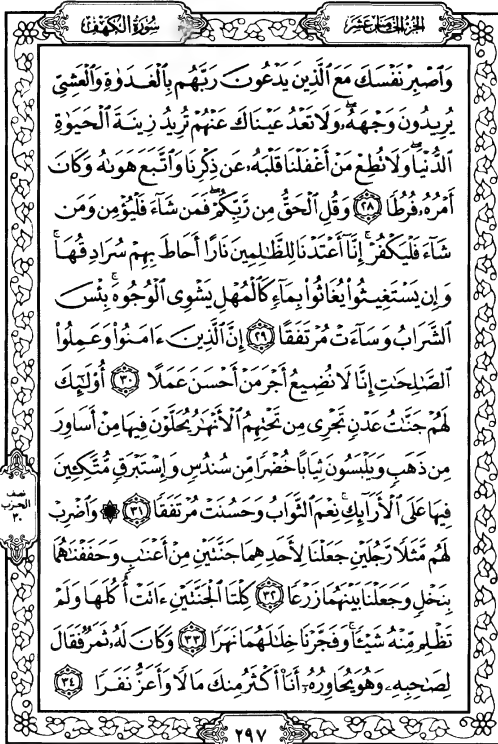 سُورَةُ الكَهْفِ
الجُزْءُ الخَامِسَ عَشَرَ
وَٱصْبِرْ نَفْسَكَ مَعَ ٱلَّذِينَ يَدْعُونَ رَبَّهُم بِٱلْغَدَوٰةِ وَٱلْعَشِىِّ
يُرِيدُونَ وَجْهَهُۥ ۖ وَلَا تَعْدُ عَيْنَاكَ عَنْهُمْ تُرِيدُ زِينَةَ ٱلْحَيَوٰةِ
ٱلدُّنْيَا ۖ وَلَا تُطِعْ مَنْ أَغْفَلْنَا قَلْبَهُۥ عَن ذِكْرِنَا وَٱتَّبَعَ هَوَىٰهُ وَكَانَ
أَمْرُهُۥ فُرُطًا ٢٨ وَقُلِ ٱلْحَقُّ مِن رَّبِّكُمْ ۖ فَمَن شَآءَ فَلْيُؤْمِن وَمَن
شَآءَ فَلْيَكْفُرْ ۚ إِنَّآ أَعْتَدْنَا لِلظَّٰلِمِينَ نَارًا أَحَاطَ بِهِمْ سُرَادِقُهَا ۚ
وَإِن يَسْتَغِيثُوا۟ يُغَاثُوا۟ بِمَآءٍ كَٱلْمُهْلِ يَشْوِى ٱلْوُجُوهَ ۚ بِئْسَ
ٱلشَّرَابُ وَسَآءَتْ مُرْتَفَقًا ٢٩ إِنَّ ٱلَّذِينَ ءَامَنُوا۟ وَعَمِلُوا۟
ٱلصَّٰلِحَٰتِ إِنَّا لَا نُضِيعُ أَجْرَ مَنْ أَحْسَنَ عَمَلًا ٣٠ أُو۟لَٰٓئِكَ
لَهُمْ جَنَّٰتُ عَدْنٍ تَجْرِى مِن تَحْتِهِمُ ٱلْأَنْهَٰرُ يُحَلَّوْنَ فِيهَا مِنْ أَسَاوِرَ
مِن ذَهَبٍ وَيَلْبَسُونَ ثِيَابًا خُضْرًا مِّن سُندُسٍ وَإِسْتَبْرَقٍ مُّتَّكِـِٔينَ
فِيهَا عَلَى ٱلْأَرَآئِكِ ۚ نِعْمَ ٱلثَّوَابُ وَحَسُنَتْ مُرْتَفَقًا ٣١ ۞ وَٱضْرِبْ
لَهُم مَّثَلًا رَّجُلَيْنِ جَعَلْنَا لِأَحَدِهِمَا جَنَّتَيْنِ مِنْ أَعْنَٰبٍ وَحَفَفْنَٰهُمَا
بِنَخْلٍ وَجَعَلْنَا بَيْنَهُمَا زَرْعًا ٣٢ كِلْتَا ٱلْجَنَّتَيْنِ ءَاتَتْ أُكُلَهَا وَلَمْ
تَظْلِم مِّنْهُ شَيْـًٔا ۚ وَفَجَّرْنَا خِلَٰلَهُمَا نَهَرًا ٣٣ وَكَانَ لَهُۥ ثَمَرٌ فَقَالَ
لِصَٰحِبِهِۦ وَهُوَ يُحَاوِرُهُۥٓ أَنَا۠ أَكْثَرُ مِنكَ مَالًا وَأَعَزُّ نَفَرًا ٣٤
نصف
الحزب
٣٠
٢٩٧